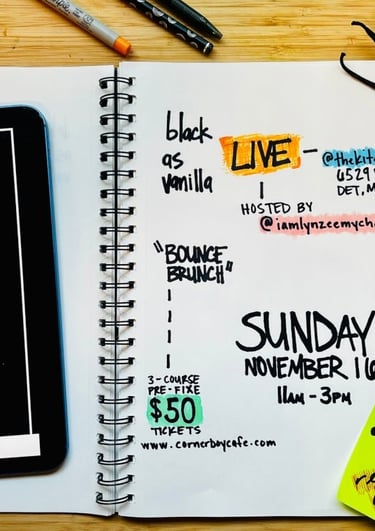 black
as
vanilla
LIVE –
@thekit
4529
DET, M
HOSTED BY
@iamlynzeemych
"BOUNCE
BRUNCH"
SUNDAY
NOVEMBER 16
11AM – 3PM
3-COURSE
PRE-FIXE
$50
TICKETS
www.cornerboycafe.com